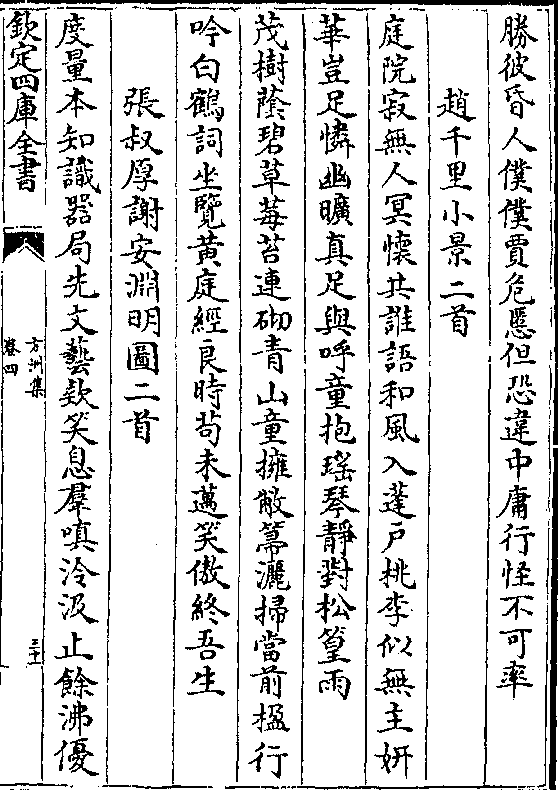 勝彼昏人僕僕賈危慝但恐違中庸行怪不可率
趙千里小景二首
庭院寂無人冥懷共誰語和風入蓬戸桃李似無主妍
華豈足憐幽曠真足與呼童抱瑤琴靜對松篁雨
茂樹蔭碧草莓苔連砌青山童擁敝箒灑掃當前楹行
吟白鶴詞坐覽黄庭經良時茍未邁笑傲終吾生
張叔厚謝安淵明圖二首
度量本知識器局先文藝欵笑息羣嗔泠汲止餘沸優
欽定四庫全書
方洲集
卷四
三十